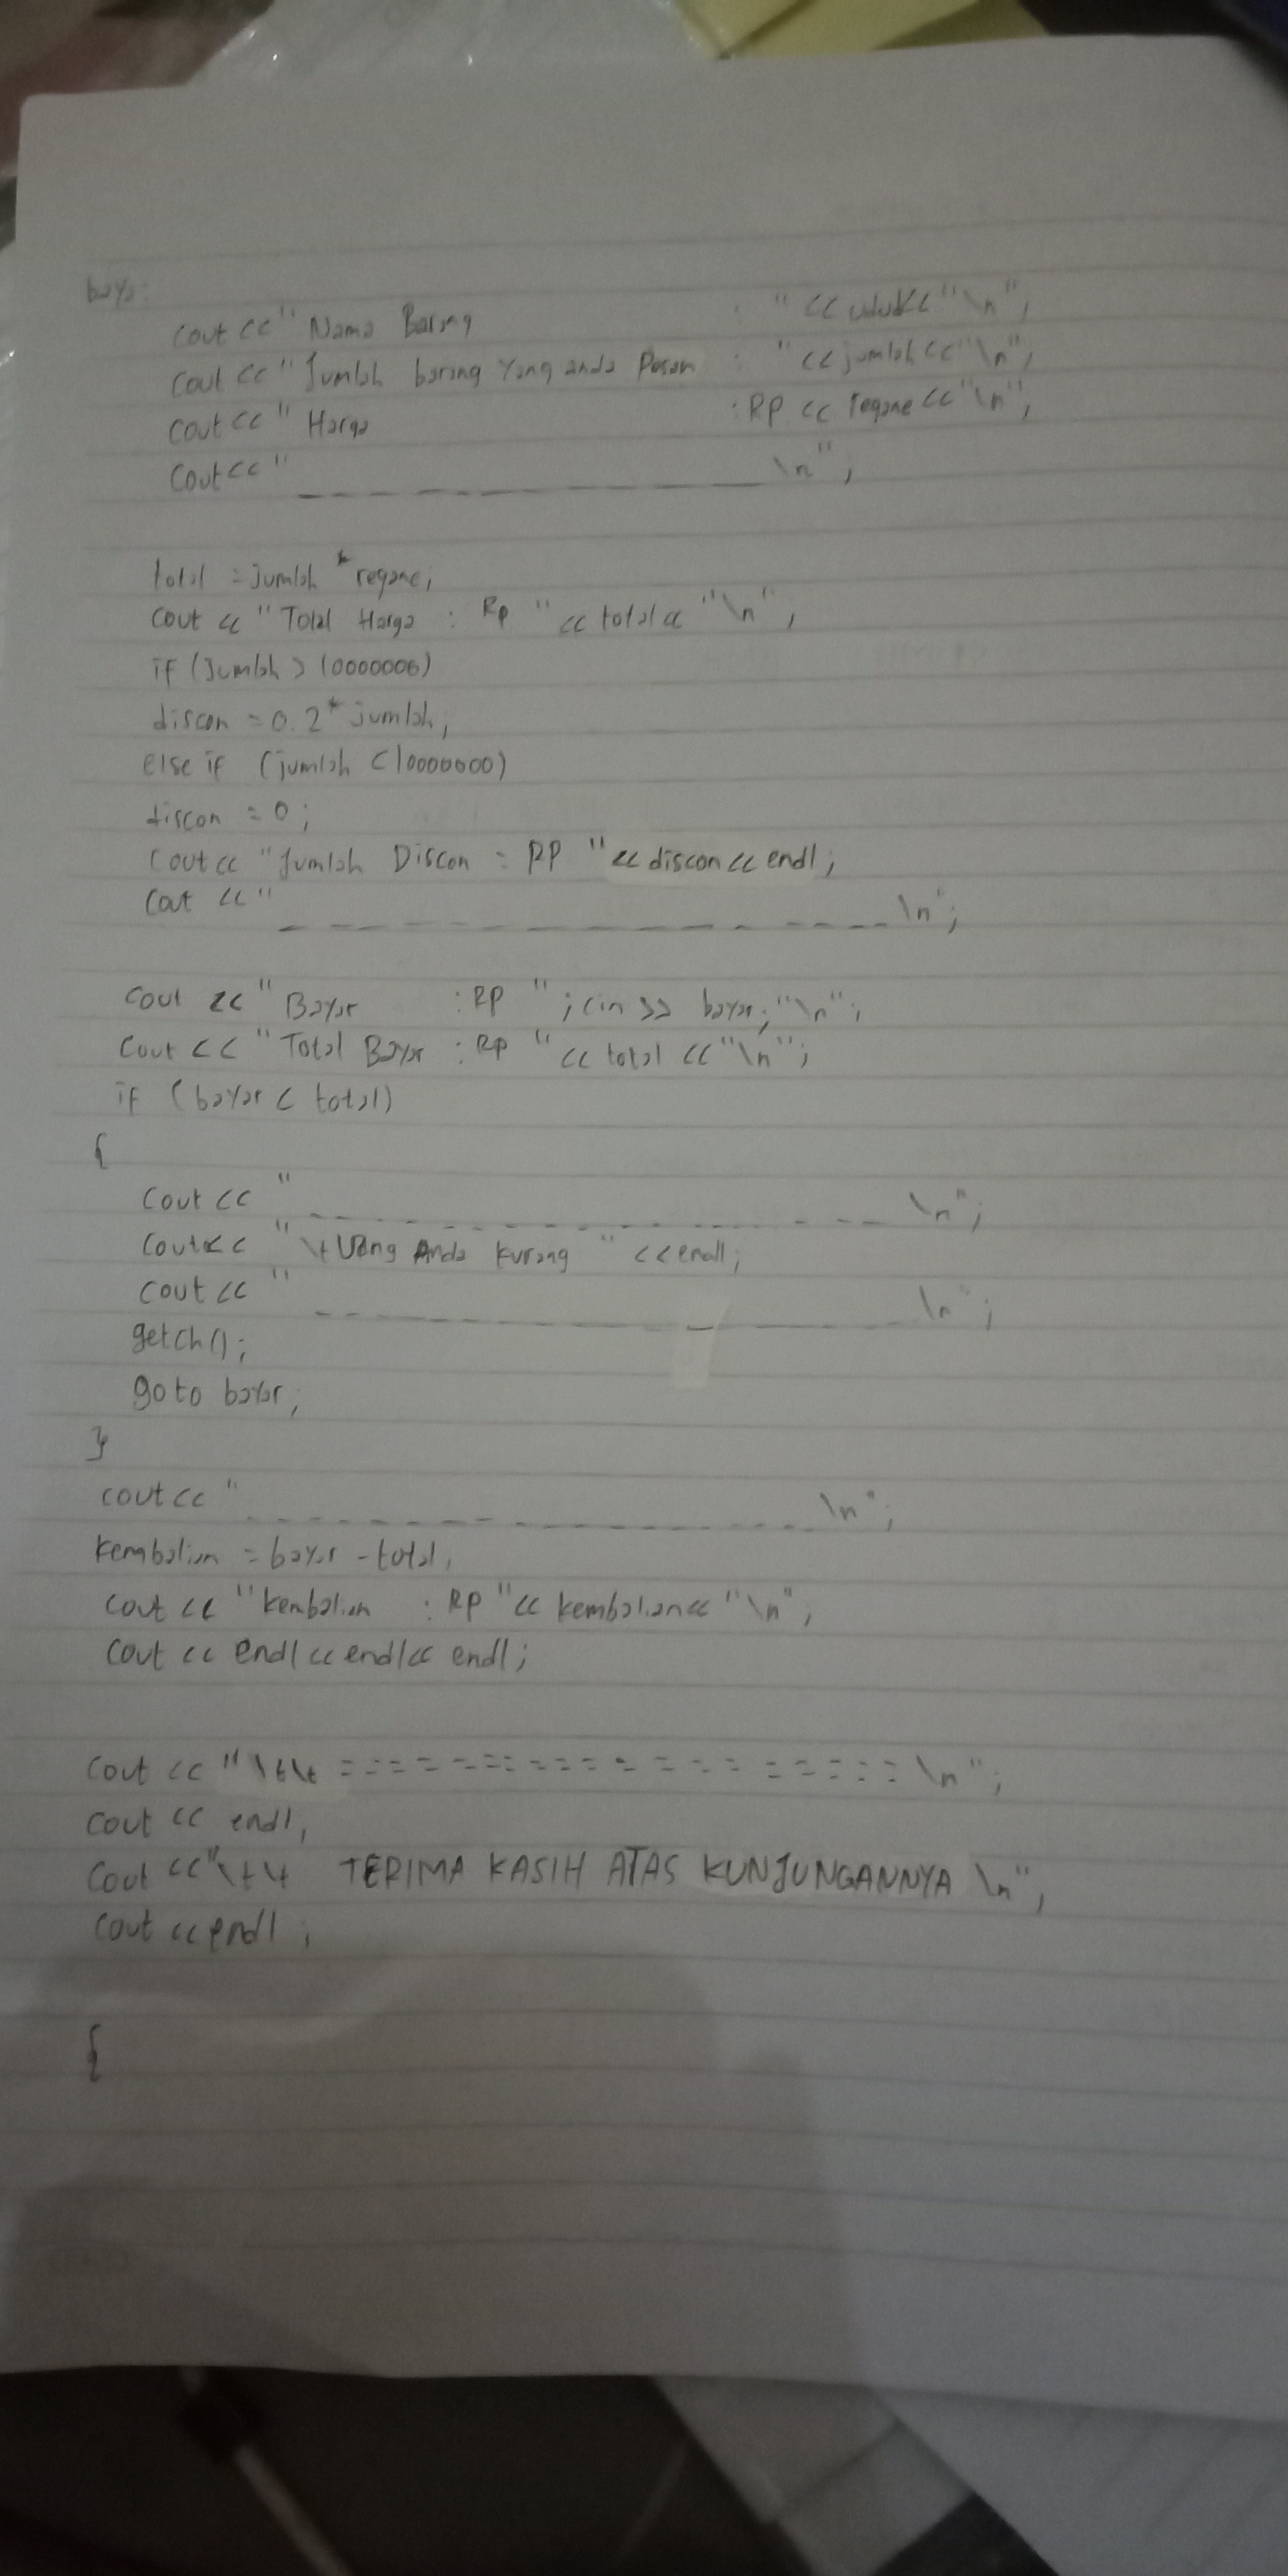 bayar:
cout << " Nama Barang : " << uduk << "\n";
cout << " Jumlah barang yang anda Pesan : " << jumlah << "\n";
cout << " Harga : RP << regane << "\n";
cout << " _ _ _ _ _ _ _ _ _ _ _ \n";
total = jumlah * regane;
cout << " Total Harga : Rp " << total << "\n";
if (jumlah > 10000000)
discon = 0.2 * jumlah;
else if (jumlah < 10000000)
discon = 0;
cout << "Jumlah Discon = RP " << discon << endl;
cout << " _ _ _ _ _ _ _ _ _ _ _ _ \n";
cout << " Bayar : RP " ; cin >> bayar; "\n";
cout << " Total Bayar : RP " << total << "\n";
if (bayar < total)
{
cout << " _ _ _ _ _ _ _ _ _ _ _ _ \n";
cout << " \t Uang Anda kurang " << endl;
cout << " _ _ _ _ _ _ _ _ _ _ _ _ \n";
getch();
goto bayar;
}
cout << " _ _ _ _ _ _ _ _ _ _ _ _ \n";
kembalian = bayar - total;
cout << "kembalian : RP " << kembalian << "\n";
cout << endl << endl << endl;
cout << "\t\t = = = = = = = = = = = = = = = = = = = \n";
cout << endl;
cout << "\t\t TERIMA KASIH ATAS KUNJUNGANNYA \n";
cout << endl;
{